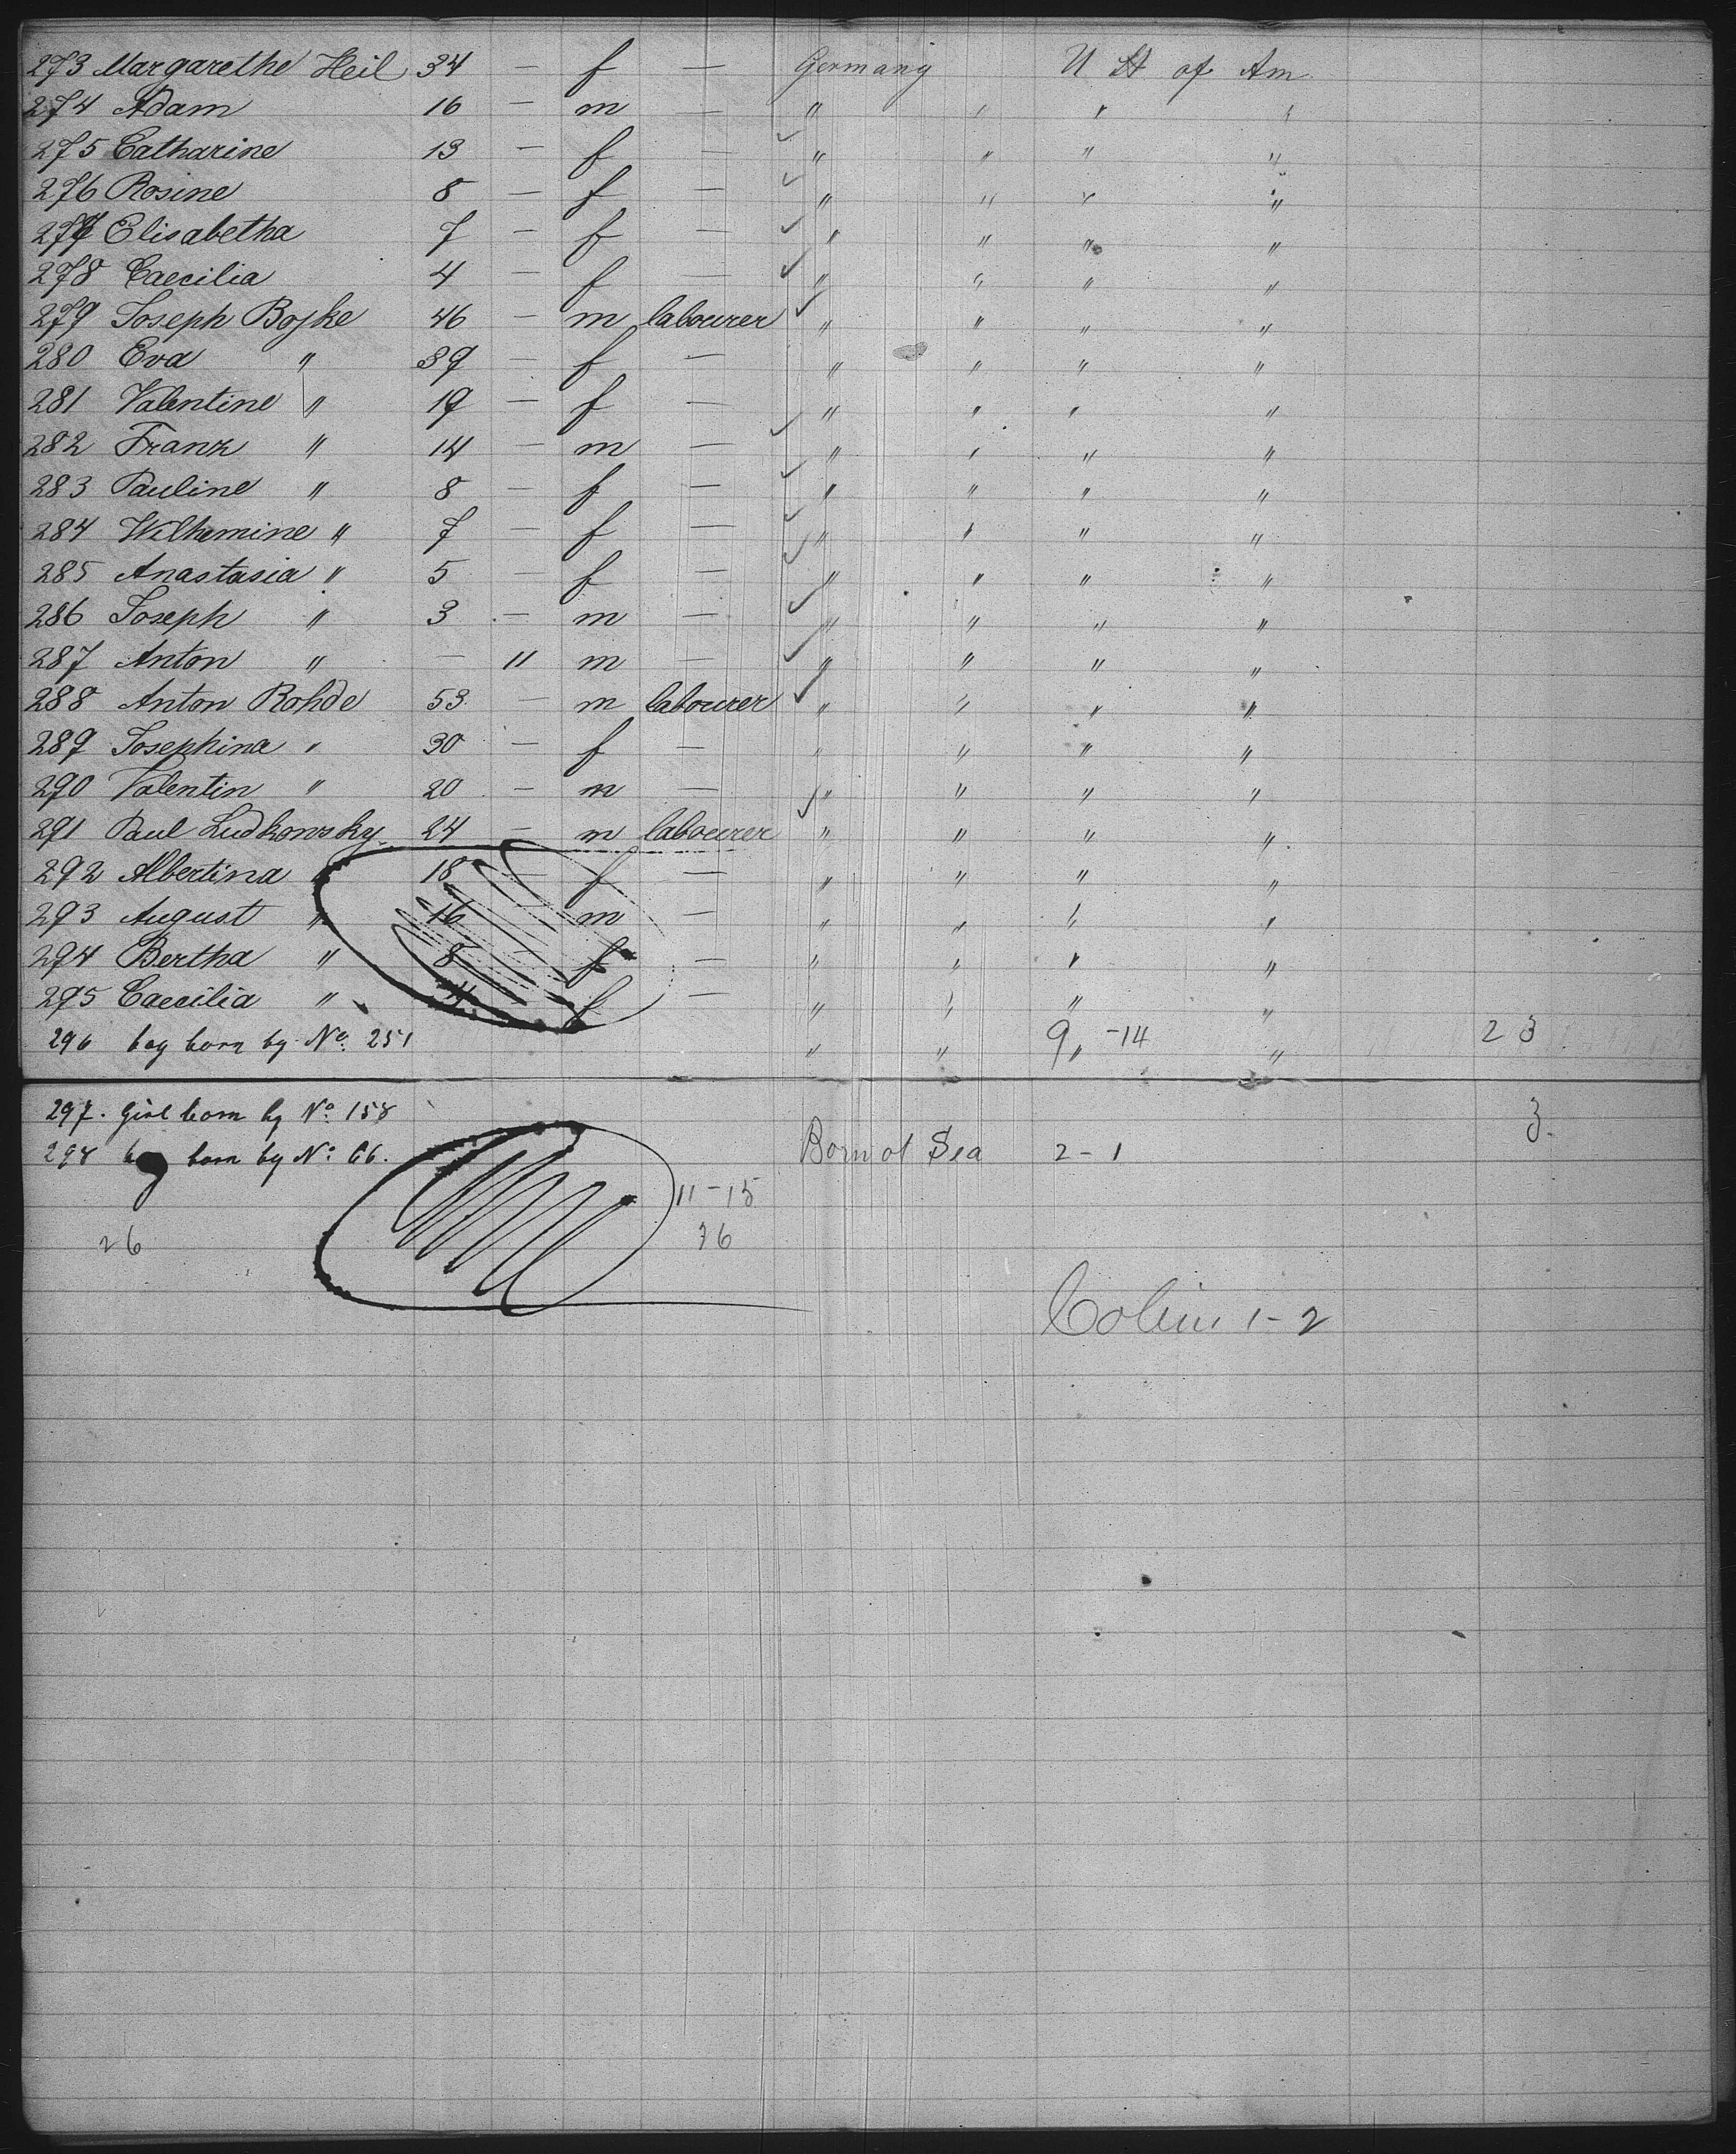 273 Margarethe Heil 34 — f — Germany U St of Am
274 Adam 16 — m — " " " "
275 Catharine 13 — f — " " " "
276 Rosine 8 — f — " " " "
277 Elisabetha 7 — f — " " " "
278 Caecilia 4 — f — " " " "
279 Joseph Bojke 46 — m labourer " " " "
280 Eva " 39 — f — " " " "
281 Valentine " 19 — f — " " " "
282 Franz " 14 — m — " " " "
283 Pauline " 8 — f — " " " "
284 Wilhemine " 7 — f — " " " "
285 Anastasia " 5 — f — " " " "
286 Joseph " 3 — m — " " " "
287 Anton " — 11 m — " " " "
288 Anton Rohde 53 — m labourer " " " "
289 Josephina " 30 — f — " " " "
290 Valentin " 20 — m — " " " "
291 Paul Ludkowsky 24 — m labourer " " " "
292 Albertina " 18 — f — " " " "
293 August " 16 — m — " " " "
294 Bertha " 8 — f — " " " "
295 Caecilia " 4 — f — " " " "
296 boy born by No. 251 " " 9 " -14 " 23
297. Girl born by No. 158 3
298 boy born by No. 66. Born at Sea 2-1
11-15
26 76
1-2